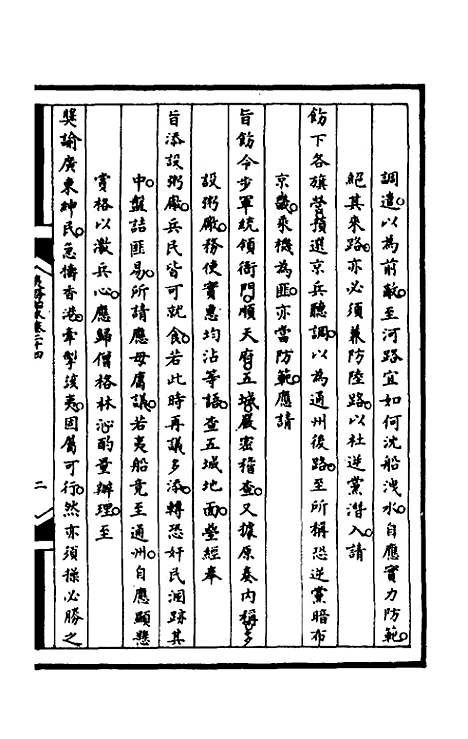 調遣以為前敵至河路宜如何沈船洩水自應實力防範
絕其來路亦必須兼防陸路以杜逆黨潛入請
飭下各旗營預選京兵聽調以為通州後路至所稱恐逆黨暗布
京畿乘機為匪亦當防範應請
旨飭令步軍統領衙門順天府五城嚴密稽查又據原奏內稱多
設粥廠務使實惠均沾等語查五城地面業經奉
旨添設粥廠兵民皆可就食若此時再議多添轉恐奸民溷跡其
中盤詰匪易所請應毋庸議若夷船竟至通州自應顯懸
賞格以激兵心應歸僧格林沁酌量辦理至
獎諭廣東紳民急擣香港牽掣該夷因屬可行然亦須操必勝之
二